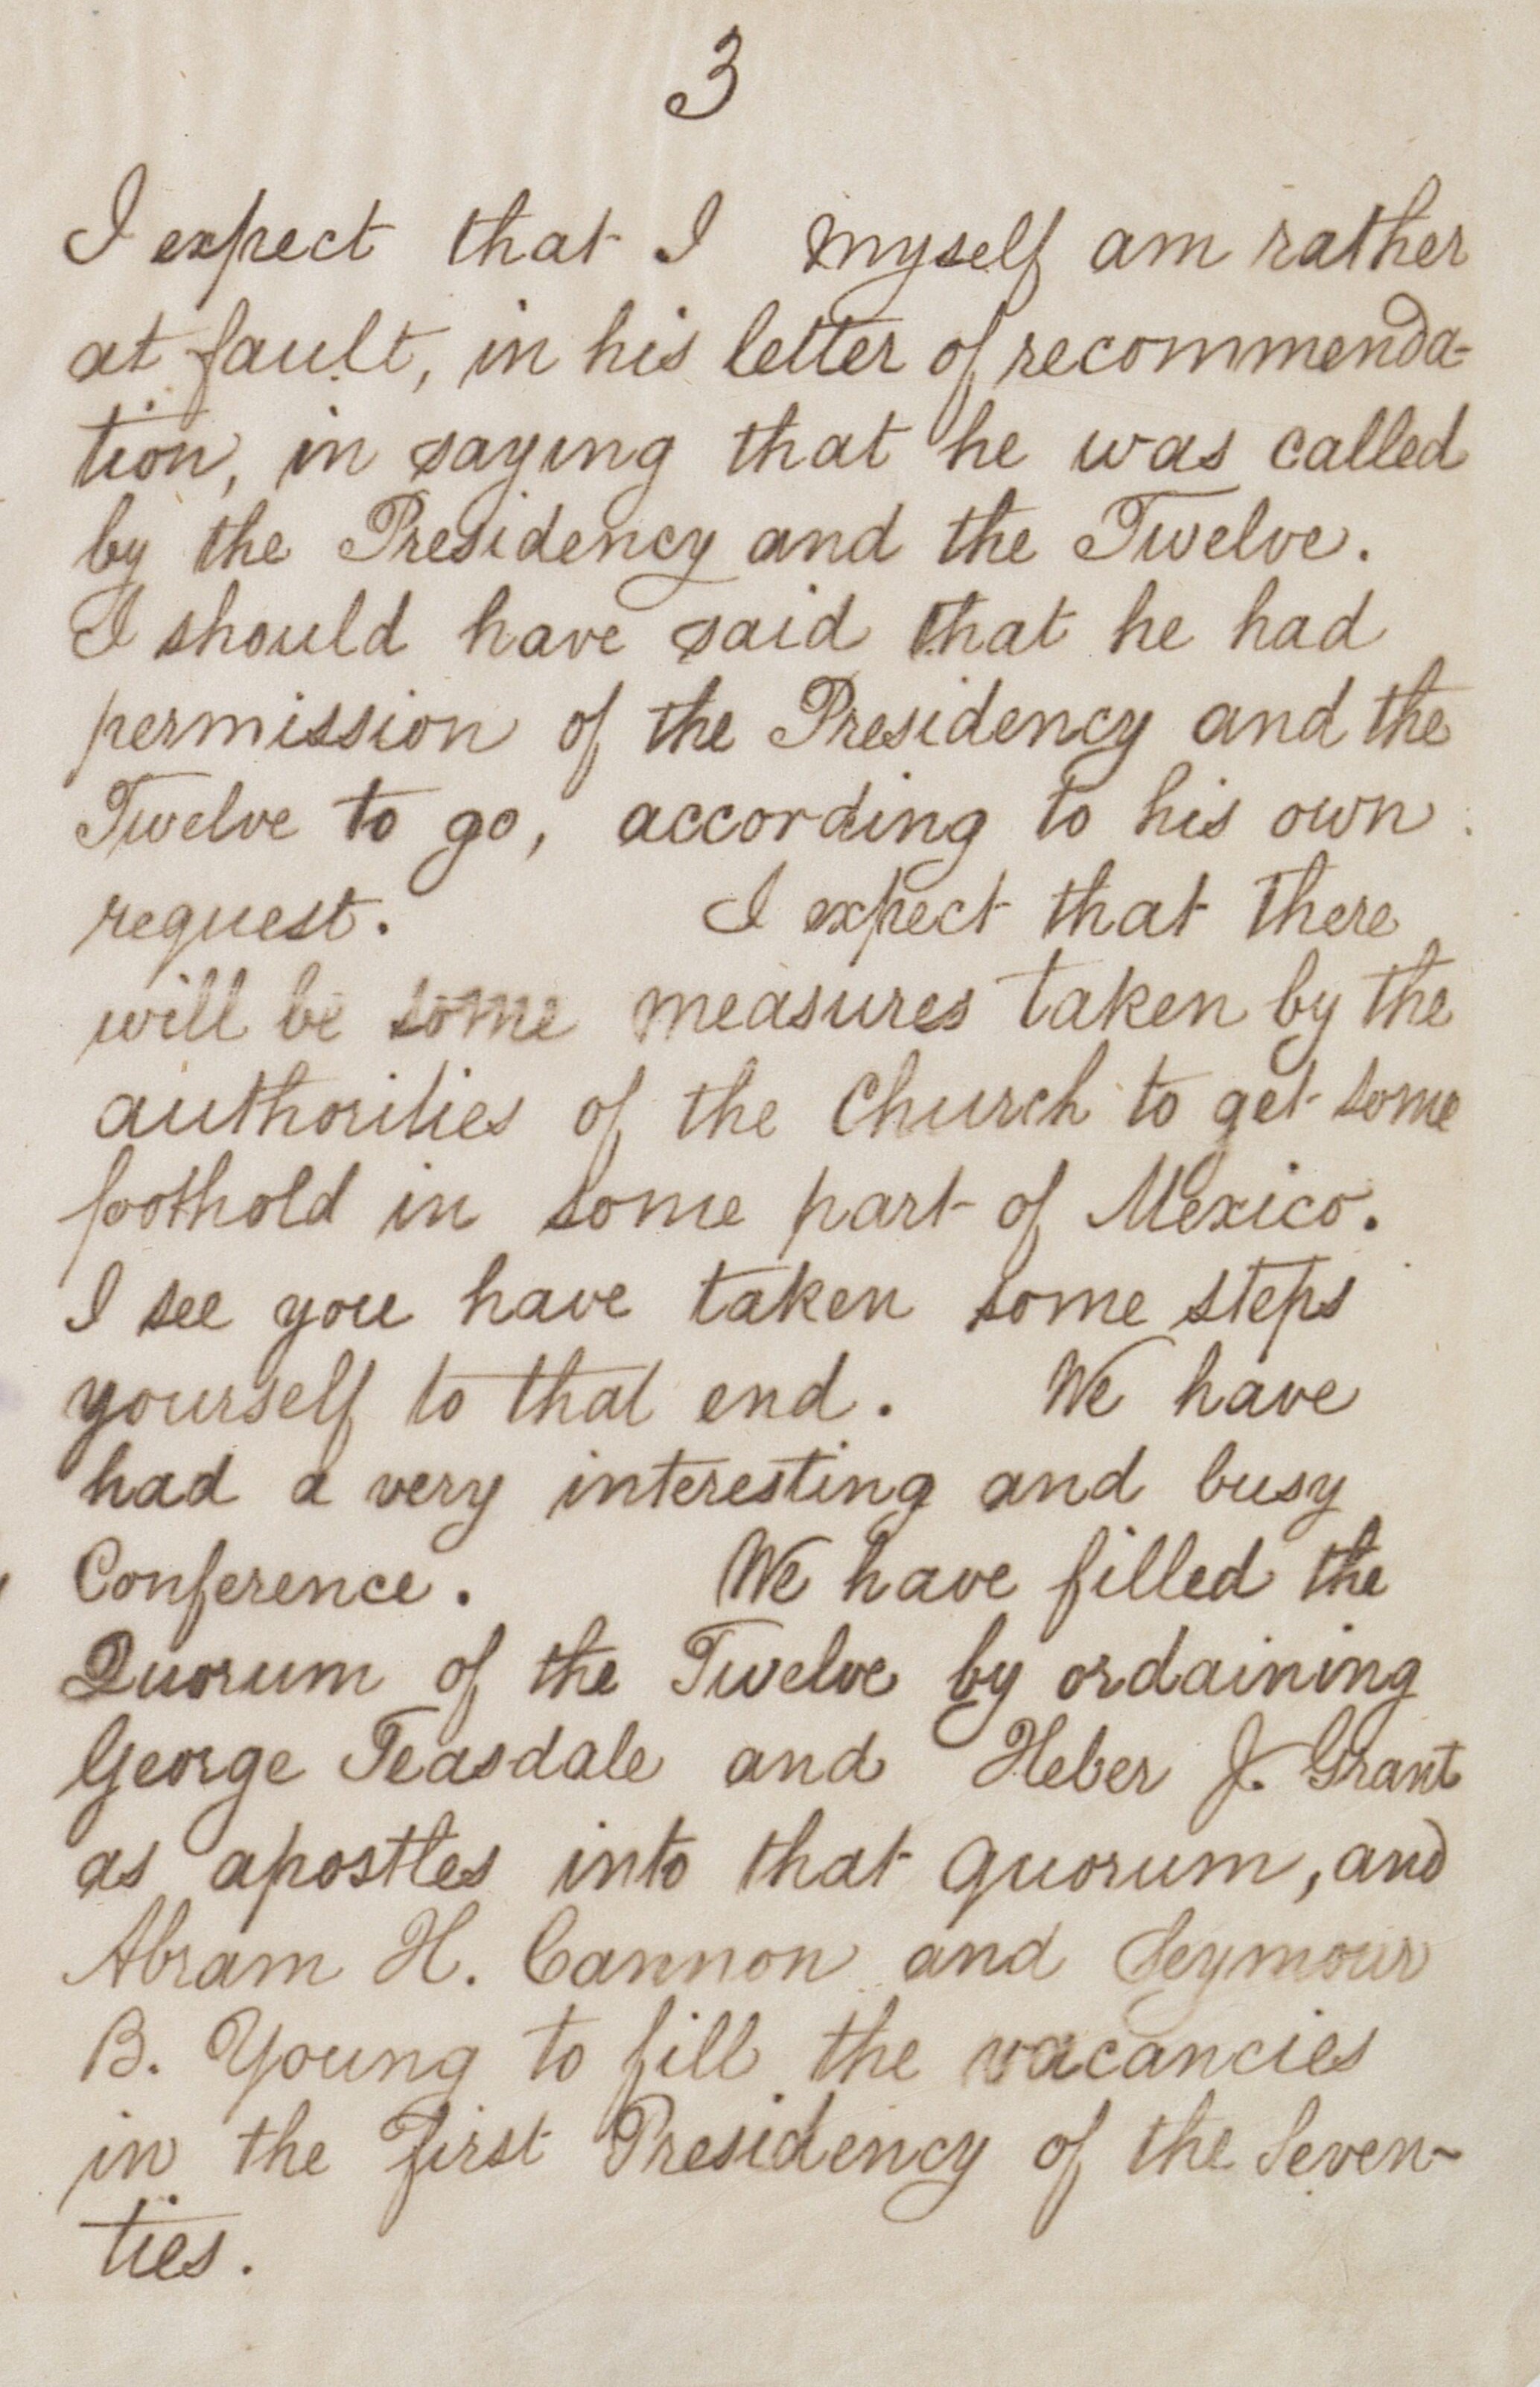 3
I expect that I myself am rather
at fault, in his letter of recommenda-
tion, in saying that he was called
by the Presidency and the Twelve.
I should have said that he had
permission of the Presidency and the
Twelve to go, according to his own
request. I expect that there
will be some measures taken by the
authorities of the Church to get some
foothold in some part of Mexico.
I see you have taken some steps
yourself to that end. We have
had a very interesting and busy
Conference. We have filled the
Quorum of the Twelve by ordaining
George Teasdale and Heber J. Grant
as apostles into that quorum, and
Abram H. Cannon and Seymour
B. Young to fill the vacancies
in the First Presidency of the Seven-
ties.